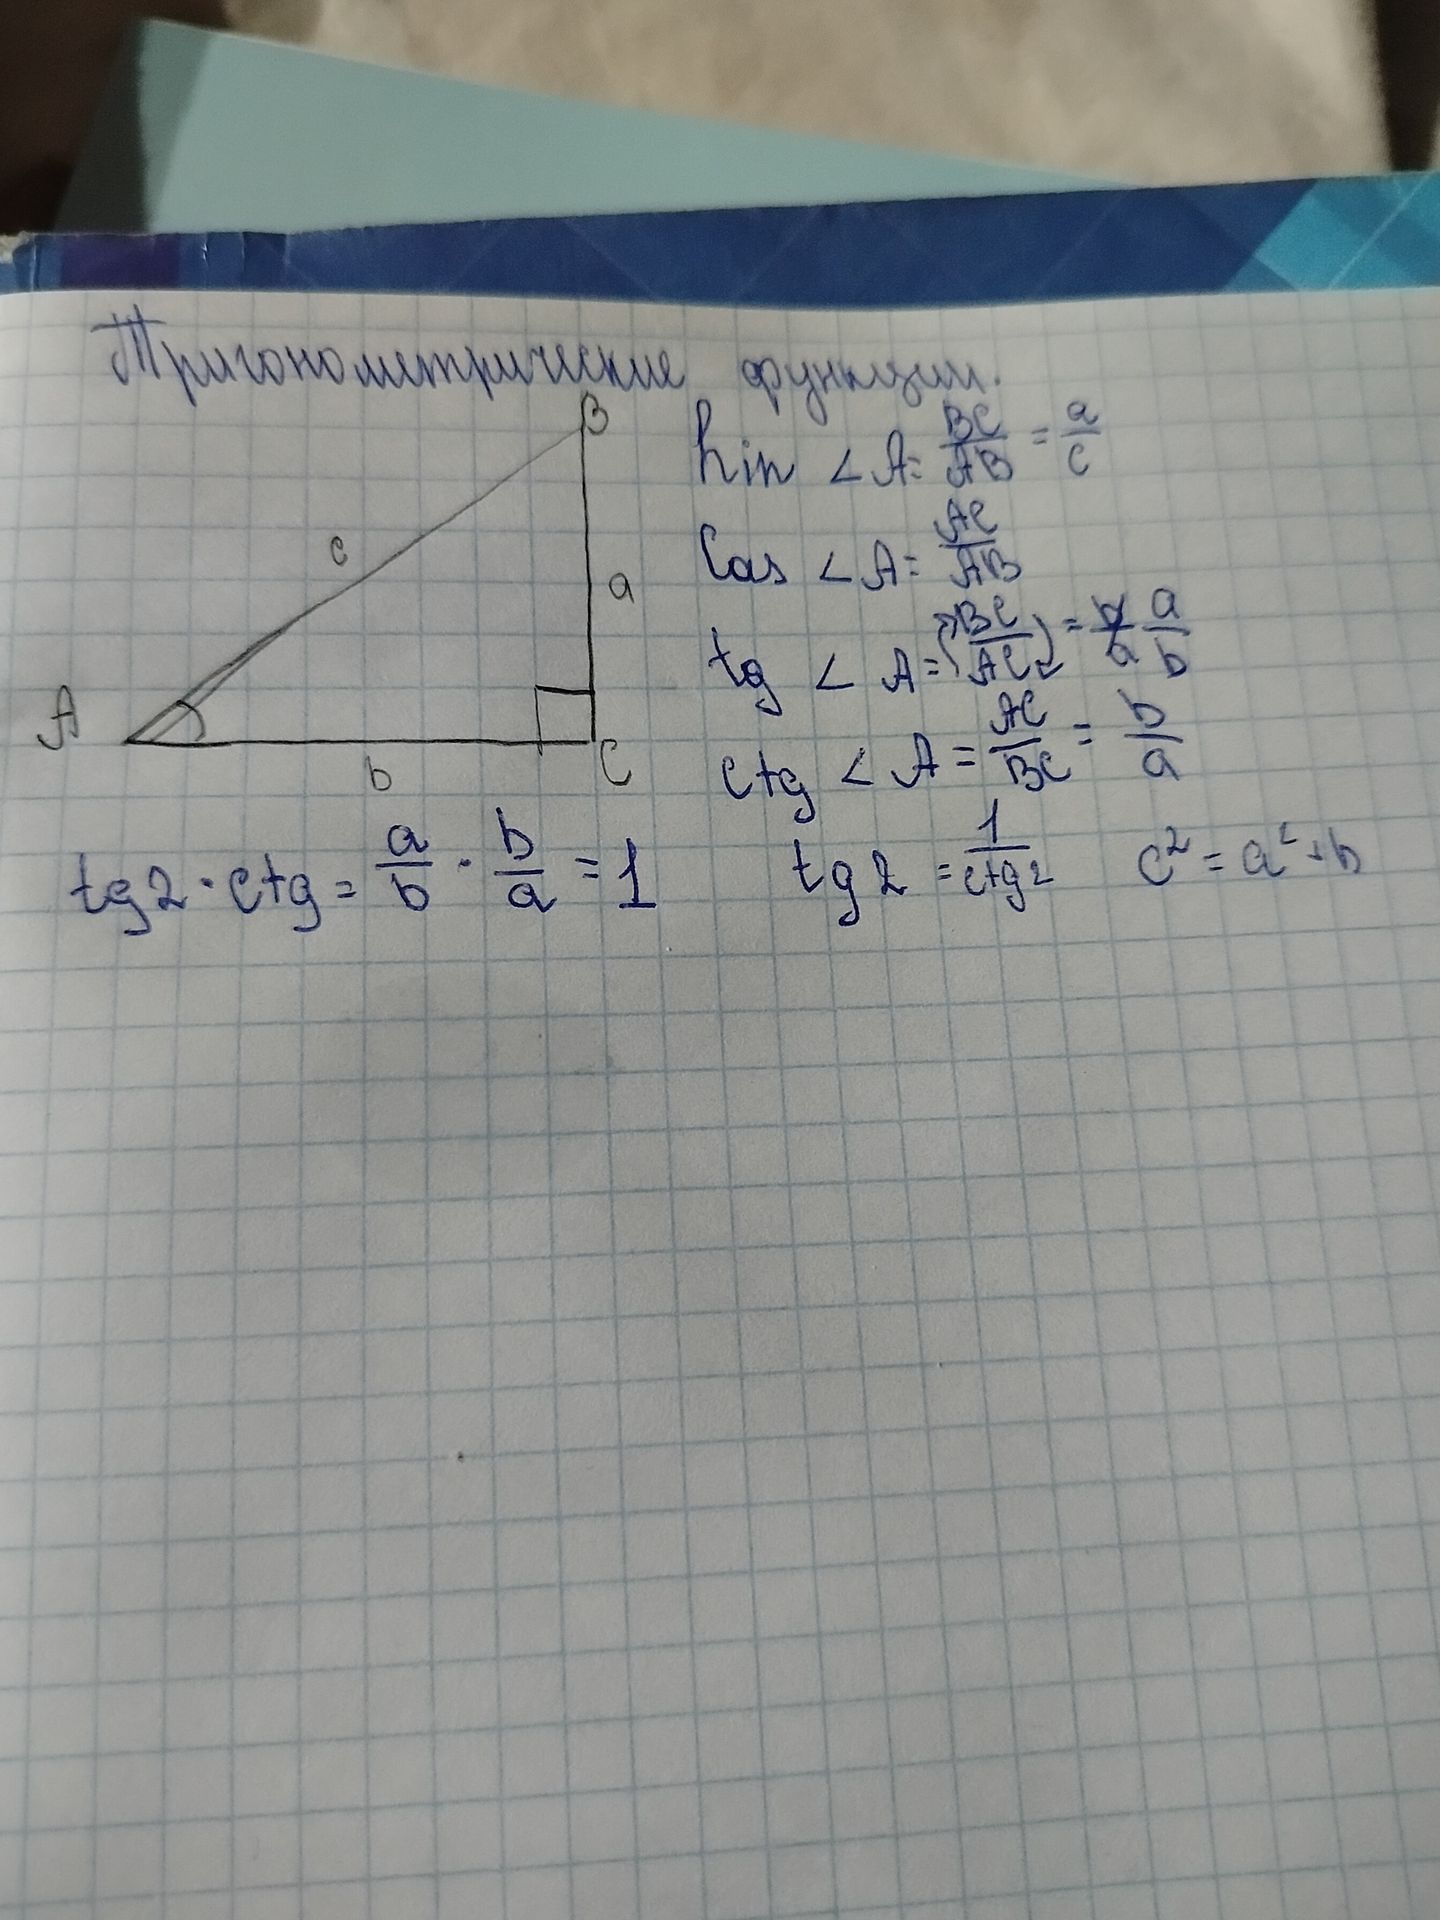 Тригонометрические функции.
B
c
a
A
b
C
sin ∠A = BC/AB = a/c
Cos ∠A = AC/AB
tg ∠A = (BC/AC) = b/a a/b
ctg ∠A = AC/BC = b/a
tg2 · ctg = a/b · b/a = 1
tg2 = 1/ctg2
c² = a² + b